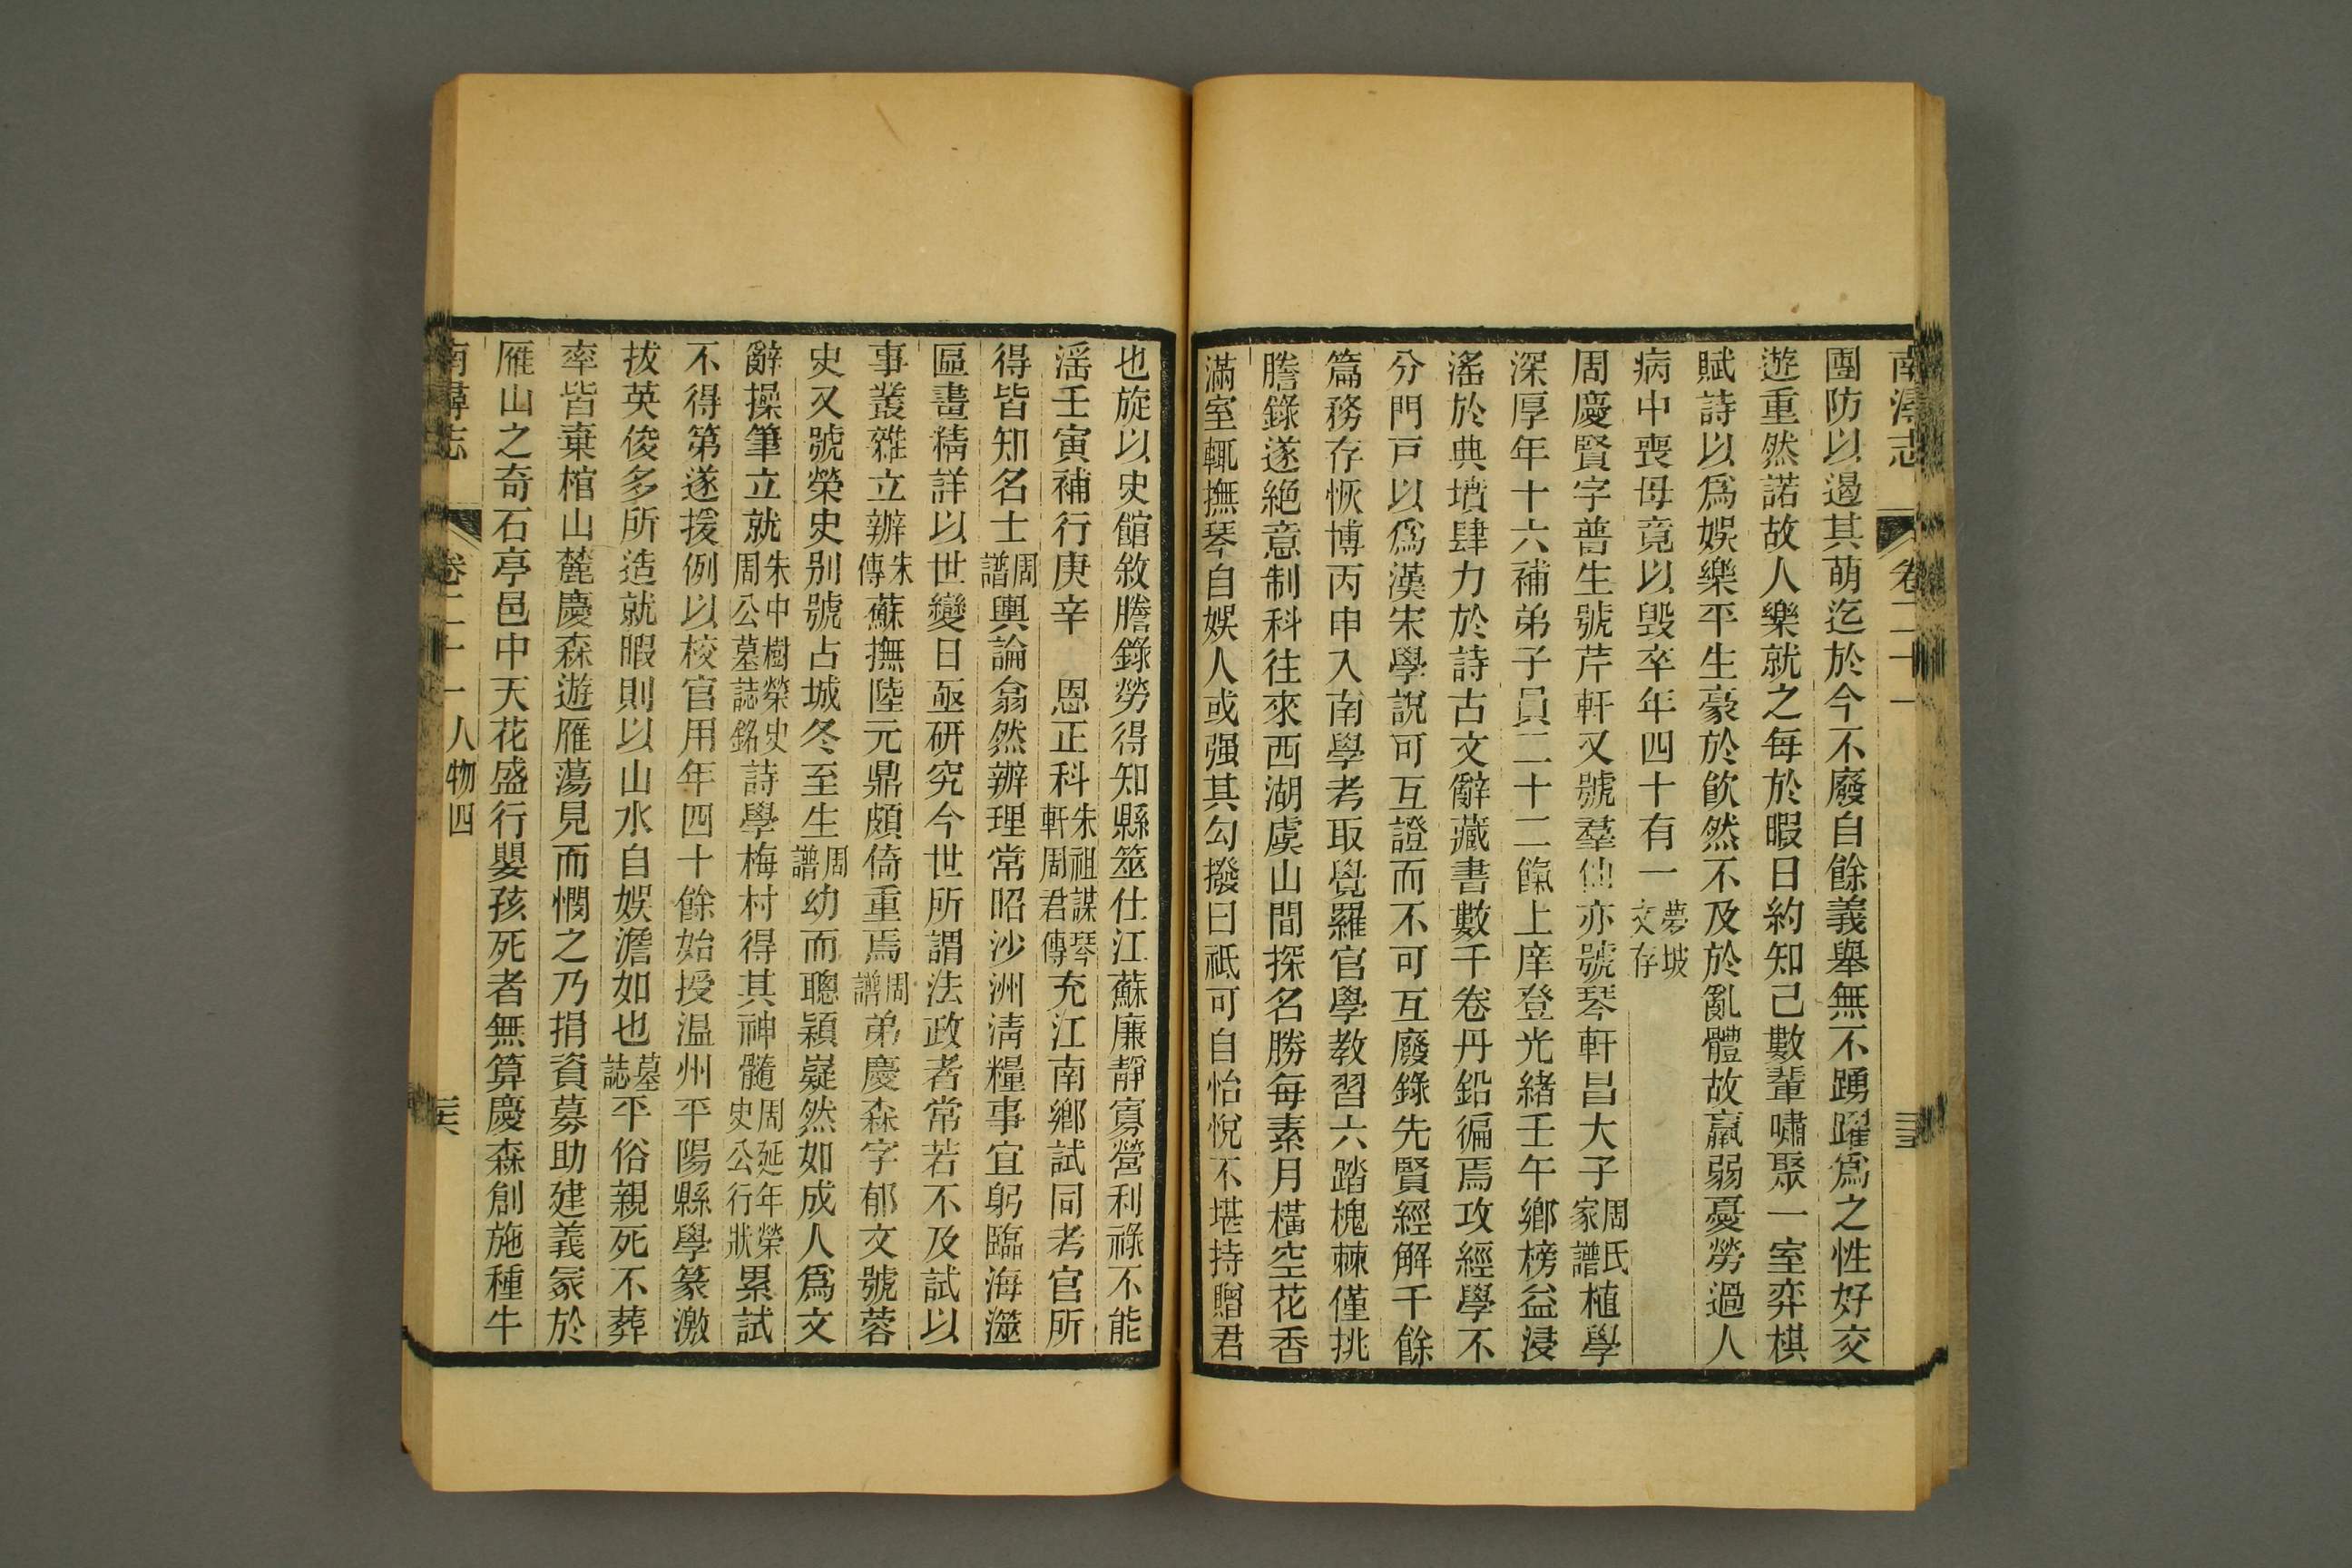 南潯志 卷二十一
團防以遏其萌迄於今不廢自餘義舉無不踴躍爲之性好交
遊重然諾故人樂就之每於暇日約知己數輩嘯聚一室弈棋
賦詩以爲娛樂平生豪於飮然不及於亂體故羸弱憂勞過人
病中喪母竟以毀卒年四十有一夢坡文存
周慶賢字普生號芹軒又號羣仙亦號琴軒昌大子周氏家譜植學
深厚年十六補弟子員二十二餼上庠登光緖壬午鄉榜益浸
滛於典墳肆力於詩古文辭藏書數千卷丹鉛徧焉攻經學不
分門戸以爲漢宋學說可互證而不可互廢錄先賢經解千餘
篇務存恢博丙申入南學考取覺羅官學敎習六踏槐棘僅挑
謄錄遂絕意制科往來西湖虞山間探名勝每素月橫空花香
滿室輒撫琴自娛人或强其勾撥曰祇可自怡悅不堪持贈君
也旋以史館敘謄錄勞得知縣筮仕江蘇廉靜寡營利祿不能
滛壬寅補行庚辛 恩正科朱祖謀琴軒周君傳充江南鄉試同考官所
得皆知名士周譜輿論翕然辦理常昭沙洲淸糧事宜躬臨海澨
區畫精詳以世變日亟硏究今世所謂法政者常若不及試以
事叢雜立辦朱傳蘇撫陸元鼎頗倚重焉周譜弟慶森字郁文號蓉
史又號榮史别號占城冬至生周譜幼而聰穎嶷然如成人爲文
辭操筆立就朱中樹榮史周公墓誌銘詩學梅村得其神髓周延年榮史公行狀累試
不得第遂援例以校官用年四十餘始授温州平陽縣學篆激
拔英俊多所造就暇則以山水自娛澹如也墓誌平俗親死不葬
率皆棄棺山麓慶森遊雁蕩見而憫之乃捐資募助建義冢於
雁山之奇石亭邑中天花盛行嬰孩死者無算慶森創施種牛
南潯志 卷二十一 人物四